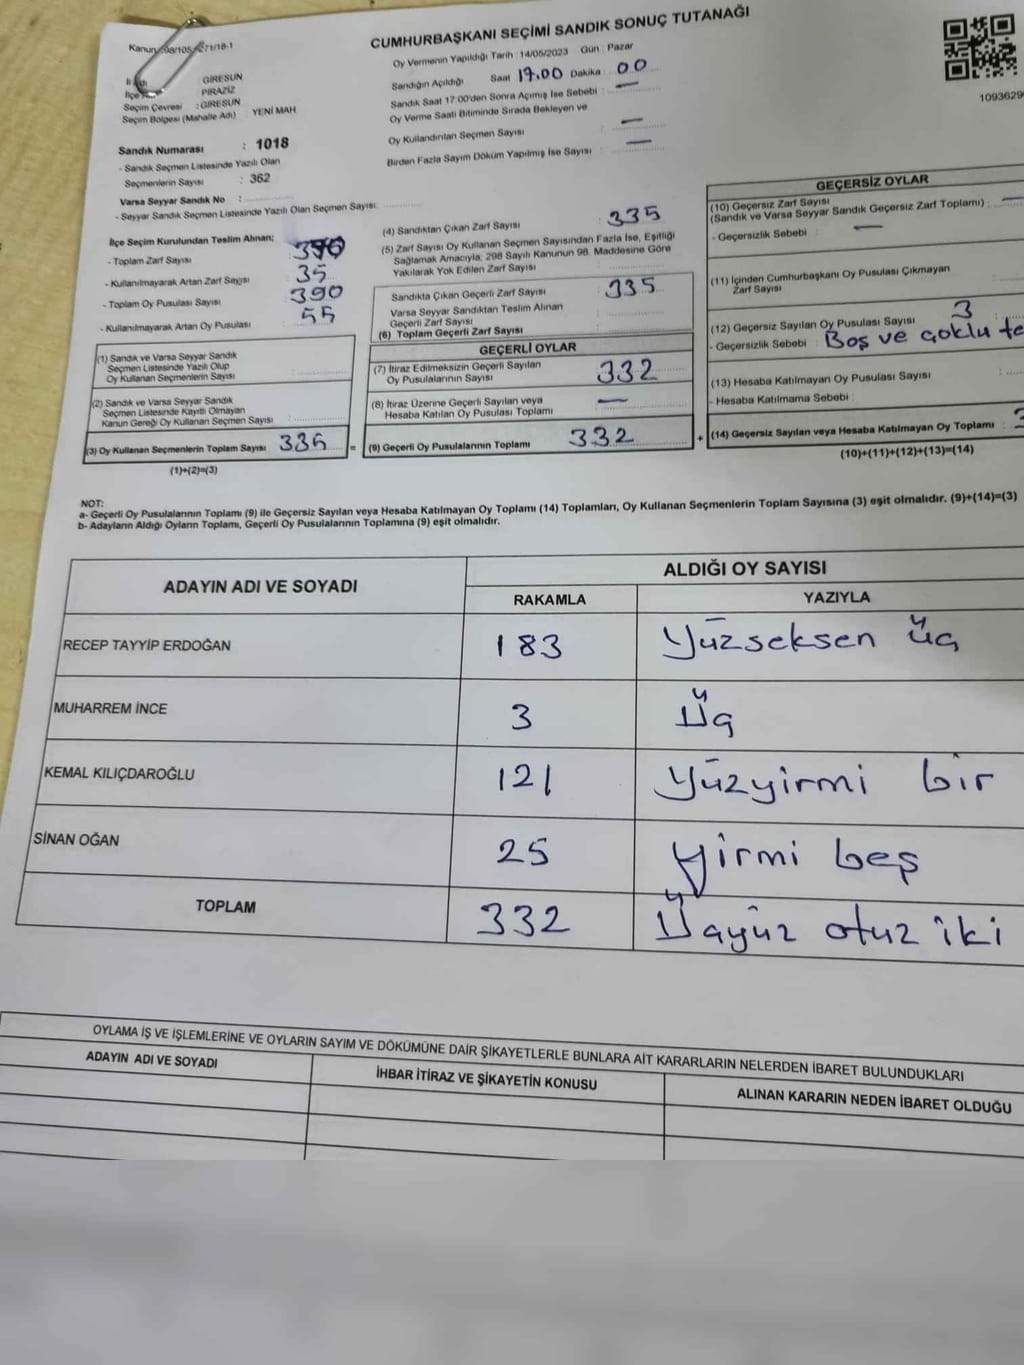 Kanun :98/105 - 271/18-1
CUMHURBAŞKANI SEÇİMİ SANDIK SONUÇ TUTANAĞI
Oy Vermenin Yapıldığı Tarih : 14/05/2023 Gün : Pazar
Sandığın Açıldığı Saat 17.00 Dakika : 00
Sandık Saat 17:00'den Sonra Açımış İse Sebebi : —
Oy Verme Saati Bitiminde Sırada Bekleyen ve
Oy Kullandırılan Seçmen Sayısı : —
Birden Fazla Sayım Döküm Yapılmış İse Sayısı : —
1093629
GİRESUN
PİRAZİZ
Seçim Çevresi : GİRESUN
Seçim Bölgesi (Mahalle Adı) : YENİ MAH
Sandık Numarası : 1018
- Sandık Seçmen Listesinde Yazılı Olan
Seçmenlerin Sayısı : 362
Varsa Seyyar Sandık No :
- Seyyar Sandık Seçmen Listesinde Yazılı Olan Seçmen Sayısı:
İlçe Seçim Kurulundan Teslim Alınan;
- Toplam Zarf Sayısı
- Kullanılmayarak Artan Zarf Sayısı : 35
- Toplam Oy Pusulası Sayısı : 390
- Kullanılmayarak Artan Oy Pusulası : 55
(1) Sandık ve Varsa Seyyar Sandık
Seçmen Listesinde Yazılı Olup
Oy Kullanan Seçmenlerin Sayısı :
(2) Sandık ve Varsa Seyyar Sandık
Seçmen Listesinde Kayıtlı Olmayan
Kanun Gereği Oy Kullanan Seçmen Sayısı :
(3) Oy Kullanan Seçmenlerin Toplam Sayısı : 335 =
(1)+(2)=(3)
(4) Sandıktan Çıkan Zarf Sayısı : 335
(5) Zarf Sayısı Oy Kullanan Seçmen Sayısından Fazla İse, Eşitliği
Sağlamak Amacıyla, 298 Sayılı Kanunun 98. Maddesine Göre
Yakılarak Yok Edilen Zarf Sayısı :
Sandıkta Çıkan Geçerli Zarf Sayısı : 335
Varsa Seyyar Sandıktan Teslim Alınan
Geçerli Zarf Sayısı :
(6) Toplam Geçerli Zarf Sayısı :
GEÇERLİ OYLAR
(7) İtiraz Edilmeksizin Geçerli Sayılan
Oy Pusulalarının Sayısı : 332
(8) İtiraz Üzerine Geçerli Sayılan veya
Hesaba Katılan Oy Pusulası Toplamı : —
(9) Geçerli Oy Pusulalarının Toplamı : 332 +
GEÇERSİZ OYLAR
(10) Geçersiz Zarf Sayısı
(Sandık ve Varsa Seyyar Sandık Geçersiz Zarf Toplamı) : —
- Geçersizlik Sebebi : —
(11) İçinden Cumhurbaşkanı Oy Pusulası Çıkmayan
Zarf Sayısı :
(12) Geçersiz Sayılan Oy Pusulası Sayısı : 3
- Geçersizlik Sebebi : Boş ve çoklu te
(13) Hesaba Katılmayan Oy Pusulası Sayısı :
- Hesaba Katılmama Sebebi :
(14) Geçersiz Sayılan veya Hesaba Katılmayan Oy Toplamı :
(10)+(11)+(12)+(13)=(14)
NOT:
a- Geçerli Oy Pusulalarının Toplamı (9) ile Geçersiz Sayılan veya Hesaba Katılmayan Oy Toplamı (14) Toplamları, Oy Kullanan Seçmenlerin Toplam Sayısına (3) eşit olmalıdır. (9)+(14)=(3)
b- Adayların Aldığı Oyların Toplamı, Geçerli Oy Pusulalarının Toplamına (9) eşit olmalıdır.
ADAYIN ADI VE SOYADI ALDIĞI OY SAYISI
RAKAMLA YAZIYLA
RECEP TAYYİP ERDOĞAN 183 Yüzseksen üç
MUHARREM İNCE 3 Üç
KEMAL KILIÇDAROĞLU 121 Yüzyirmi bir
SİNAN OĞAN 25 Yirmi beş
TOPLAM 332 Üçyüz otuz iki
OYLAMA İŞ VE İŞLEMLERİNE VE OYLARIN SAYIM VE DÖKÜMÜNE DAİR ŞİKAYETLERLE BUNLARA AİT KARARLARIN NELERDEN İBARET BULUNDUKLARI
ADAYIN ADI VE SOYADI İHBAR İTİRAZ VE ŞİKAYETİN KONUSU ALINAN KARARIN NEDEN İBARET OLDUĞU